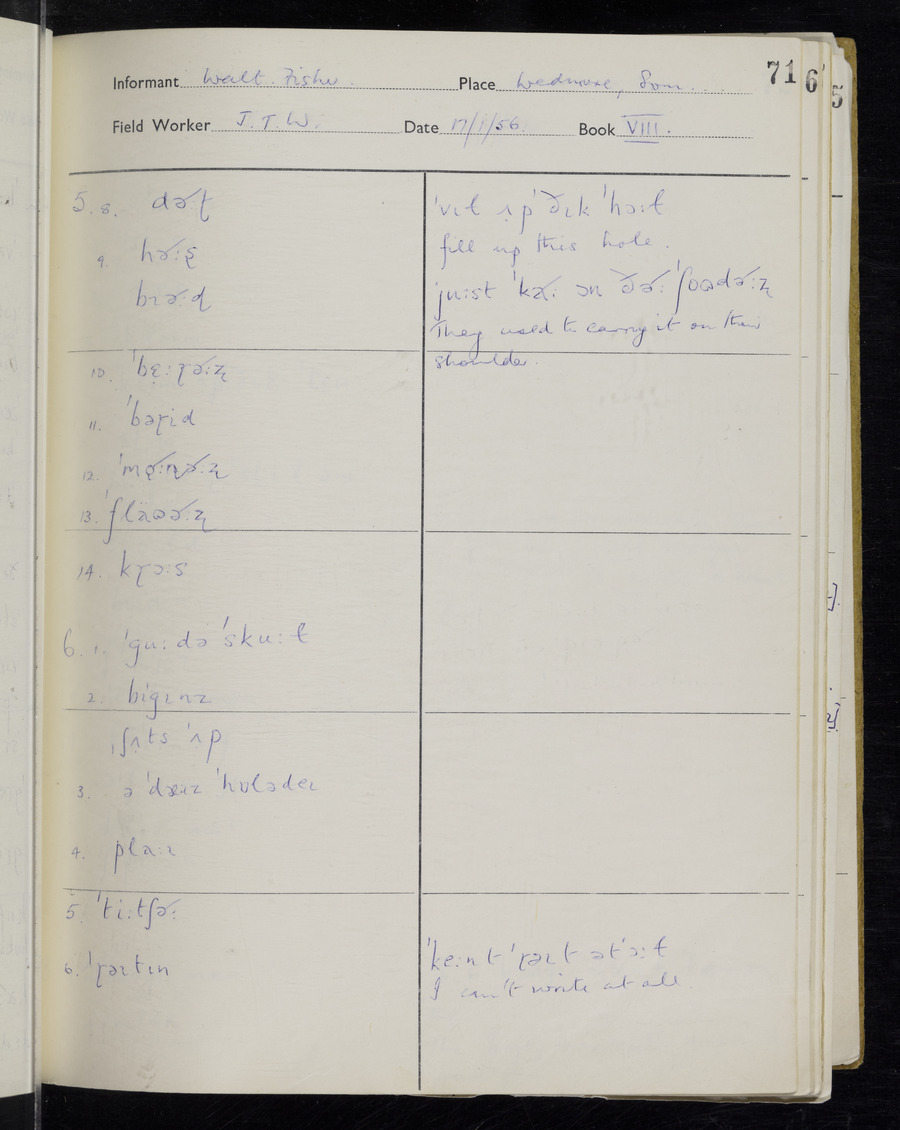 71
6
5
Informant Walt. Fisher Place Wedmore, Som.
Field Worker J. T. W. Date 17/1/56. Book VIII.
5. 8. də˞ːt
9. hə˞ː
brə˞ːd
10.
11. ˈbəɽid
12.
13.
14. kɽɔːs
6. 1. ˈguːdə ˈskuːɫ
2. biˈgɪnz
ˌʃʌts ˈʌp
3. ə ˈdæɪz ˈhɒlədeɪ
4. plaːɪ
5. ˈtiːtʃə˞ː
6. ˈɽəɪtɪn
ˈvɪɫ ʌp ˈðɪk ˈhɔːɫ
fill up this hole.
juːst
They used to carry it on their
shoulder.
ˈkeːnt ˈɽəɪt ətˈɔːɫ
I can't write at all.